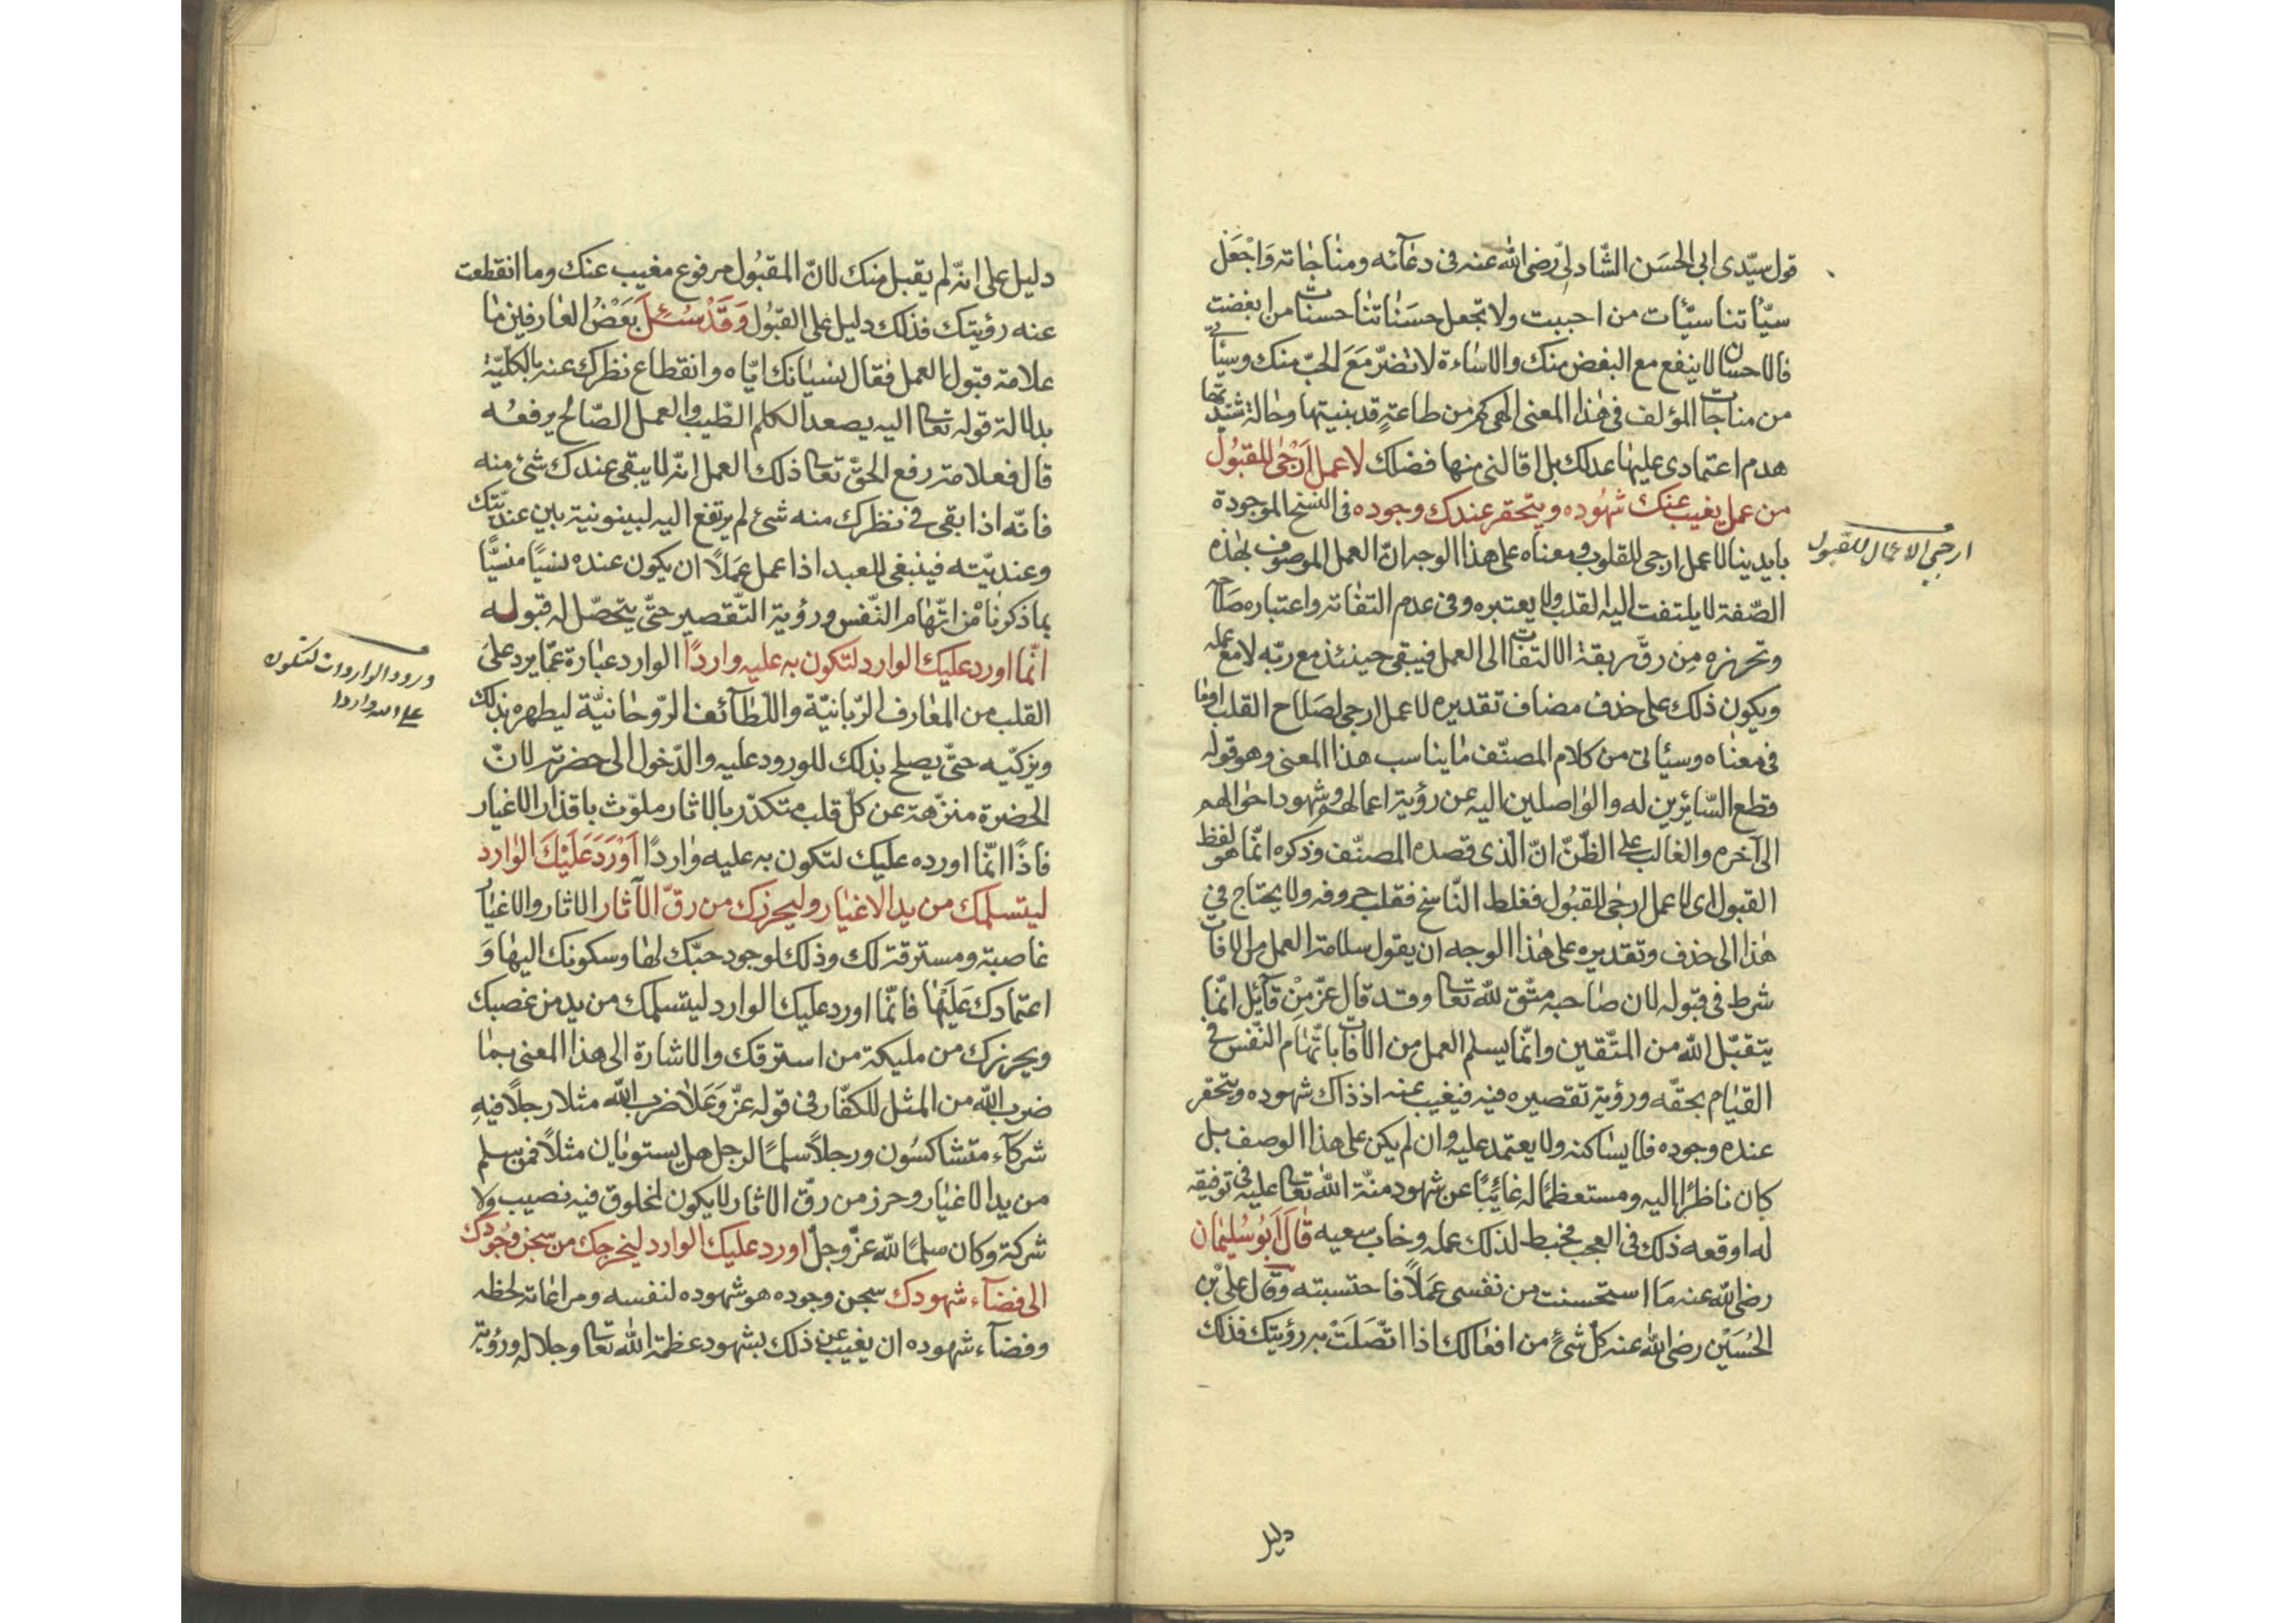 قول سيّدى ابى الحسَن الشّاذلىّ رضى الله عنه فى دعآئه ومناجاته وَاجْعَل
سيّأتنا سيّئات من احببت ولا تجعل حسَناتنا حسنات من ابغضت
فالاحسان لا ينفع مع البغض منك والاساءة لا تضرّ مَعَ الحبّ منك وسيأتى
من مناجات المؤلف فى هذا المعنى الهى كم من طاعةٍ قد بنيتها وحالة شيّدتها
هدم اعتمادى عليها عدلك بل اقالنى منها فضلك لا عمل اَرْجٰى للقبُول
من عمل يغيب عنك شهُوده ويتحقر عندك وجوده فى النسخ الموجودة
بايدينا لا عمل ارجى للقلوب ومعناه على هذا الوجه انّ العمل الموصوف بهذه
الصّفة لا يلتفت اليه القلب ولا يعتبره وفى عدم التفاته واعتباره صَلاحه
وتحرزه مِن رقّ ربقة الالتفات الى العمل فيبقى حينئذ مع ربّه لا مع عمله
ويكون ذلك على حذف مضاف تقديره لا عمل ارجى لصَلاح القلب او ما
فى معناه وسيأتى من كلام المصنّف ما يناسب هذا المعنى وهو قوله
قطع السّائرين له والواصلين اليه عن رؤية اعمالهم وشهود احوالهم
الى آخره والغالب على الظّنّ انّ الّذى قصده المصنّف وذكره انّما هو لفظ
القبول اى لا عمل ارجى للقبُول فغلط النّاسخ فقلب حروفه ولا يحتاج فى
هذا الى حذف وتقديره على هذا الوجه ان يقول سلامة العمل من الافات
شرط فى قبوله لان صاحبه متّق لله تعا وقد قال عزّ مِنْ قآئل انّما
يتقبّل الله من المتّقين وانّما يسلم العمل من الافات باتّهام النّفس فى
القيام بحقّه ورؤية تقصيره فيه فيغيب عنه اذ ذاك شهوده ويتحقر
عنده وجوده فلا يساكنه ولا يعتمد عليه وان لم يكن على هذا الوصف بل
كان ناظرًا اليه ومستعظمًا له غائبًا عن شهود منّة الله تعا عليه فى توفيقه
له اوقعه ذلك فى العجب فحبط لذلك عمله وخاب سعيه قالَ اَبُو سُليمان
رضى الله عنه مَا استحسنت من نفسى عَمَلاً فاحتسبته وقال على بْن
الحُسَيْن رضى الله عنه كلّ شئ من افعالك اذا اتّصَلَتْ به رؤيتك فذلك
دليل
ارجى الاعمال للقبول
دليل على انّه لم يقبل منك لانّ المقبُول مرفوع مغيب عنك وما انقطعت
عنه رؤيتك فذلك دليل على القبُول وَقَدْ سُئِلَ بَعْضُ العارفين ما
علامة قبول العمل فقال نسيانك ايّاه وانقطاع نظرك عنه بالكليّة
بدلالة قوله تعا اليه يصعد الكلم الطّيب والعمل الصّالح يرفعُه
قال فعلامة رفع الحقّ تعا ذلك العمل انّه لا يبقى عندك شئ منه
فانّه اذا بقى فى نظرك منه شئ لم يرتفع اليه لبينونية بين عنديّتك
وعنديّته فينبغى للعبد اذا عمل عمَلاً ان يكون عنده نسيًا منسيًّا
بما ذكرنا مْن اتّهام النّفس ورؤية التّقصير حتّى يتحصّل له قبوله
انّما اورد عليك الوارد لتكون به عليه واردًا الوارد عبارة عمّا يرد على
القلب من المعارف الرّبانيّة واللّطآئف الرّوحانيّة ليطهره بذلك
ويزكّيه حتّى يصلح بذلك للورود عليه والدّخول الى حضرته لانّ
الحضرة منزّهة عن كلّ قلب متكدّر بالاثار ملوّث باقذار الاغيار
فاذًا انّما اورده عليك لتكون به عليه واردًا اَوْرَدَ عَلَيْكَ الوارد
ليتسلمك من يد الاغيار وليحرزك من رقّ الآثار الاثار والاغيار
غاصبة ومسترقة لك وذلك لوجود حبّك لها وسكونك اليها وَ
اعتمادك عَلَيْها فانّما اورد عليك الوارد ليتسلمك من يد من غصبك
ويحرزك من مليكة من استرقك والاشارة الى هذا المعنى بما
ضرب الله من المثل للكفّار فى قوله عزّ وَعَلا ضرب الله مثلا رجلاً فيهِ
شركآء متشاكسُون ورجلاً سلمًا لرجل هل يستويان مثلاً فمن سلم
من يد الاغيار وحرز من رقّ الاثار لا يكون لمخلوق فيه نصيب ولا
شركة وكان سلمًا لله عزّ وجلّ اورد عليك الوارد ليخرجك من سجن وجُودك
الى فضآء شهودك سجن وجوده هو شهوده لنفسه ومراعاته لحظه
وفضآء شهوده ان يغيب عن ذلك بشهود عظمة الله تعا وجلاله ورؤية
ورود الواردات لتكون
على الله واردا